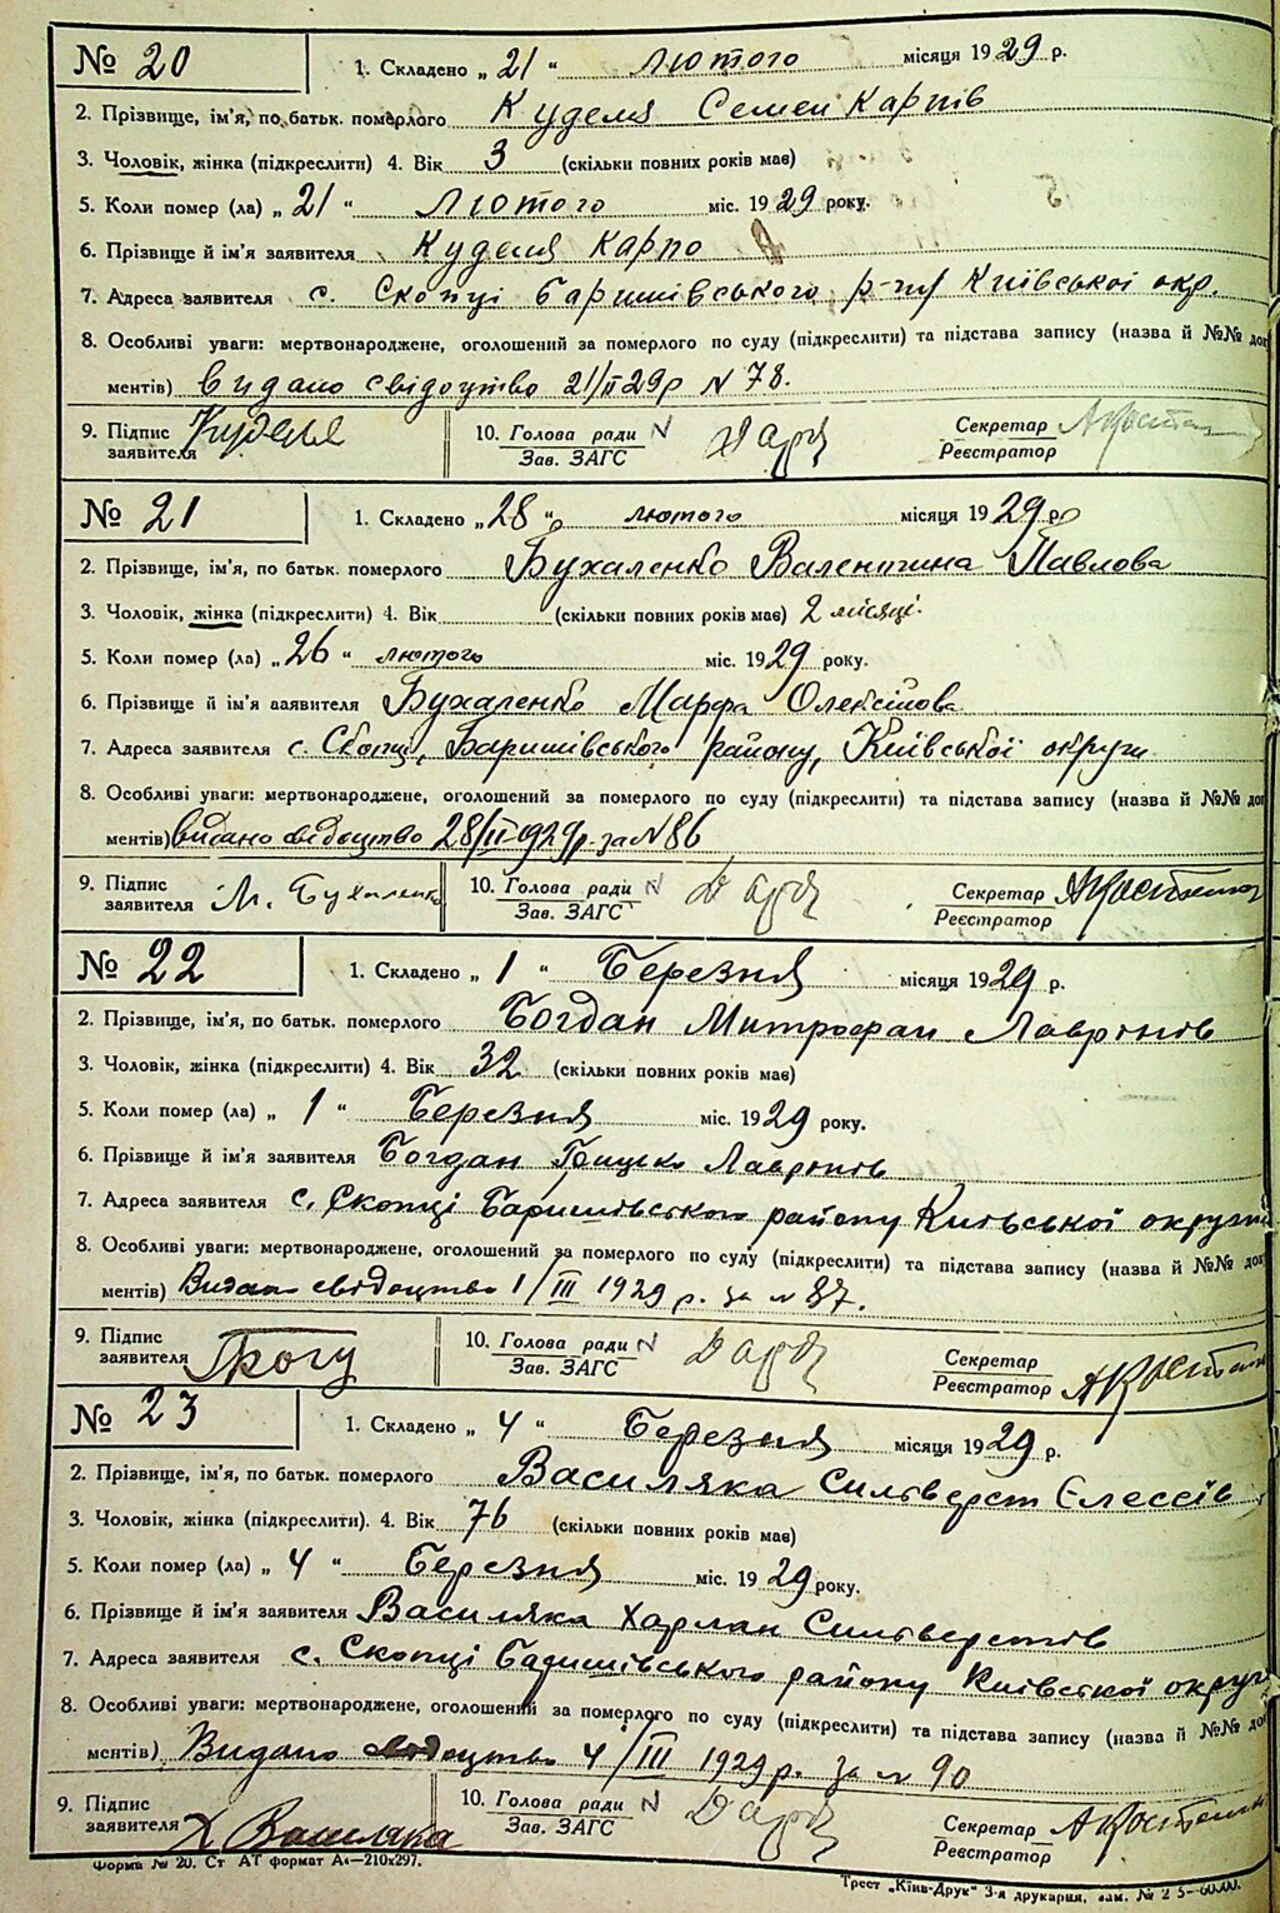 № 20 1. Складено „ 21 " лютого місяця 1929 р.
2. Прізвище, ім'я, по батьк. померлого Куделя Семен Карпів
3. Чоловік, жінка (підкреслити) 4. Вік 3 (скільки повних років має)
5. Коли помер (ла) „ 21 " лютого міс. 1929 року.
6. Прізвище й ім'я заявителя Куделя Карпо
7. Адреса заявителя с. Скопці Баришівського р-ну Київської окр.
8. Особливі уваги: мертвонароджене, оголошений за померлого по суду (підкреслити) та підстава запису (назва й №№ доку
ментів) видано свідоцтво 21/II 29р N 78.
9. Підпис заявителя Куделя 10. Голова ради Зав. ЗАГС Секретар Реєстратор
№ 21 1. Складено „ 28 " лютого місяця 1929 р
2. Прізвище, ім'я, по батьк. померлого Бухаленко Валентина Павлова
3. Чоловік, жінка (підкреслити) 4. Вік (скільки повних років має) 2 місяці.
5. Коли помер (ла) „ 26 " лютого міс. 1929 року.
6. Прізвище й ім'я заявителя Бухаленко Марфа Олексіїова
7. Адреса заявителя с. Скопці, Баришівського району, Київської округи
8. Особливі уваги: мертвонароджене, оголошений за померлого по суду (підкреслити) та підстава запису (назва й №№ доку
ментів) видано свідоцтво 28/II-1929р. за N 86
9. Підпис заявителя М. Бухаленко 10. Голова ради Зав. ЗАГС Секретар Реєстратор
№ 22 1. Складено „ 1 " Березня місяця 1929 р.
2. Прізвище, ім'я, по батьк. померлого Богдан Митрофан Лаврінів
3. Чоловік, жінка (підкреслити) 4. Вік 32 (скільки повних років має)
5. Коли помер (ла) „ 1 " Березня міс. 1929 року.
6. Прізвище й ім'я заявителя Богдан Грицько Лаврінів
7. Адреса заявителя с. Скопці Баришівського району Київської округи
8. Особливі уваги: мертвонароджене, оголошений за померлого по суду (підкреслити) та підстава запису (назва й №№ доку
ментів) Видано свідоцтво 1/III 1929 р. за N 87.
9. Підпис заявителя 10. Голова ради Зав. ЗАГС Секретар Реєстратор
№ 23 1. Складено „ 4 " Березня місяця 1929 р.
2. Прізвище, ім'я, по батьк. померлого Василяка Сильверст Єлессіїв
3. Чоловік, жінка (підкреслити). 4. Вік 76 (скільки повних років має)
5. Коли помер (ла) „ 4 " Березня міс. 1929 року.
6. Прізвище й ім'я заявителя Василяка Харлан Сильверстів
7. Адреса заявителя с. Скопці Баришівського району Київської округи
8. Особливі уваги: мертвонароджене, оголошений за померлого по суду (підкреслити) та підстава запису (назва й №№ доку
ментів) Видано свідоцтво 4/III 1929 р. за N 90
9. Підпис заявителя Х Василяка 10. Голова ради Зав. ЗАГС Секретар Реєстратор
Форма № 20. Ст АТ формат А4—210х297.
Трест „Київ-Друк" 3-я друкарня, зам. №